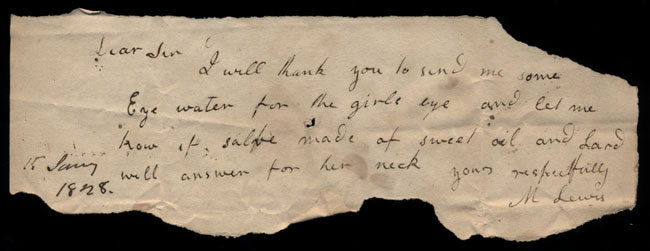 Dear Sir
I will thank you to send me some
Eye water for the girls eye and let me
know if salve made of sweet oil and Lard
will answer for her neck yours respectfully
M Lewis
15 Jany
1828.